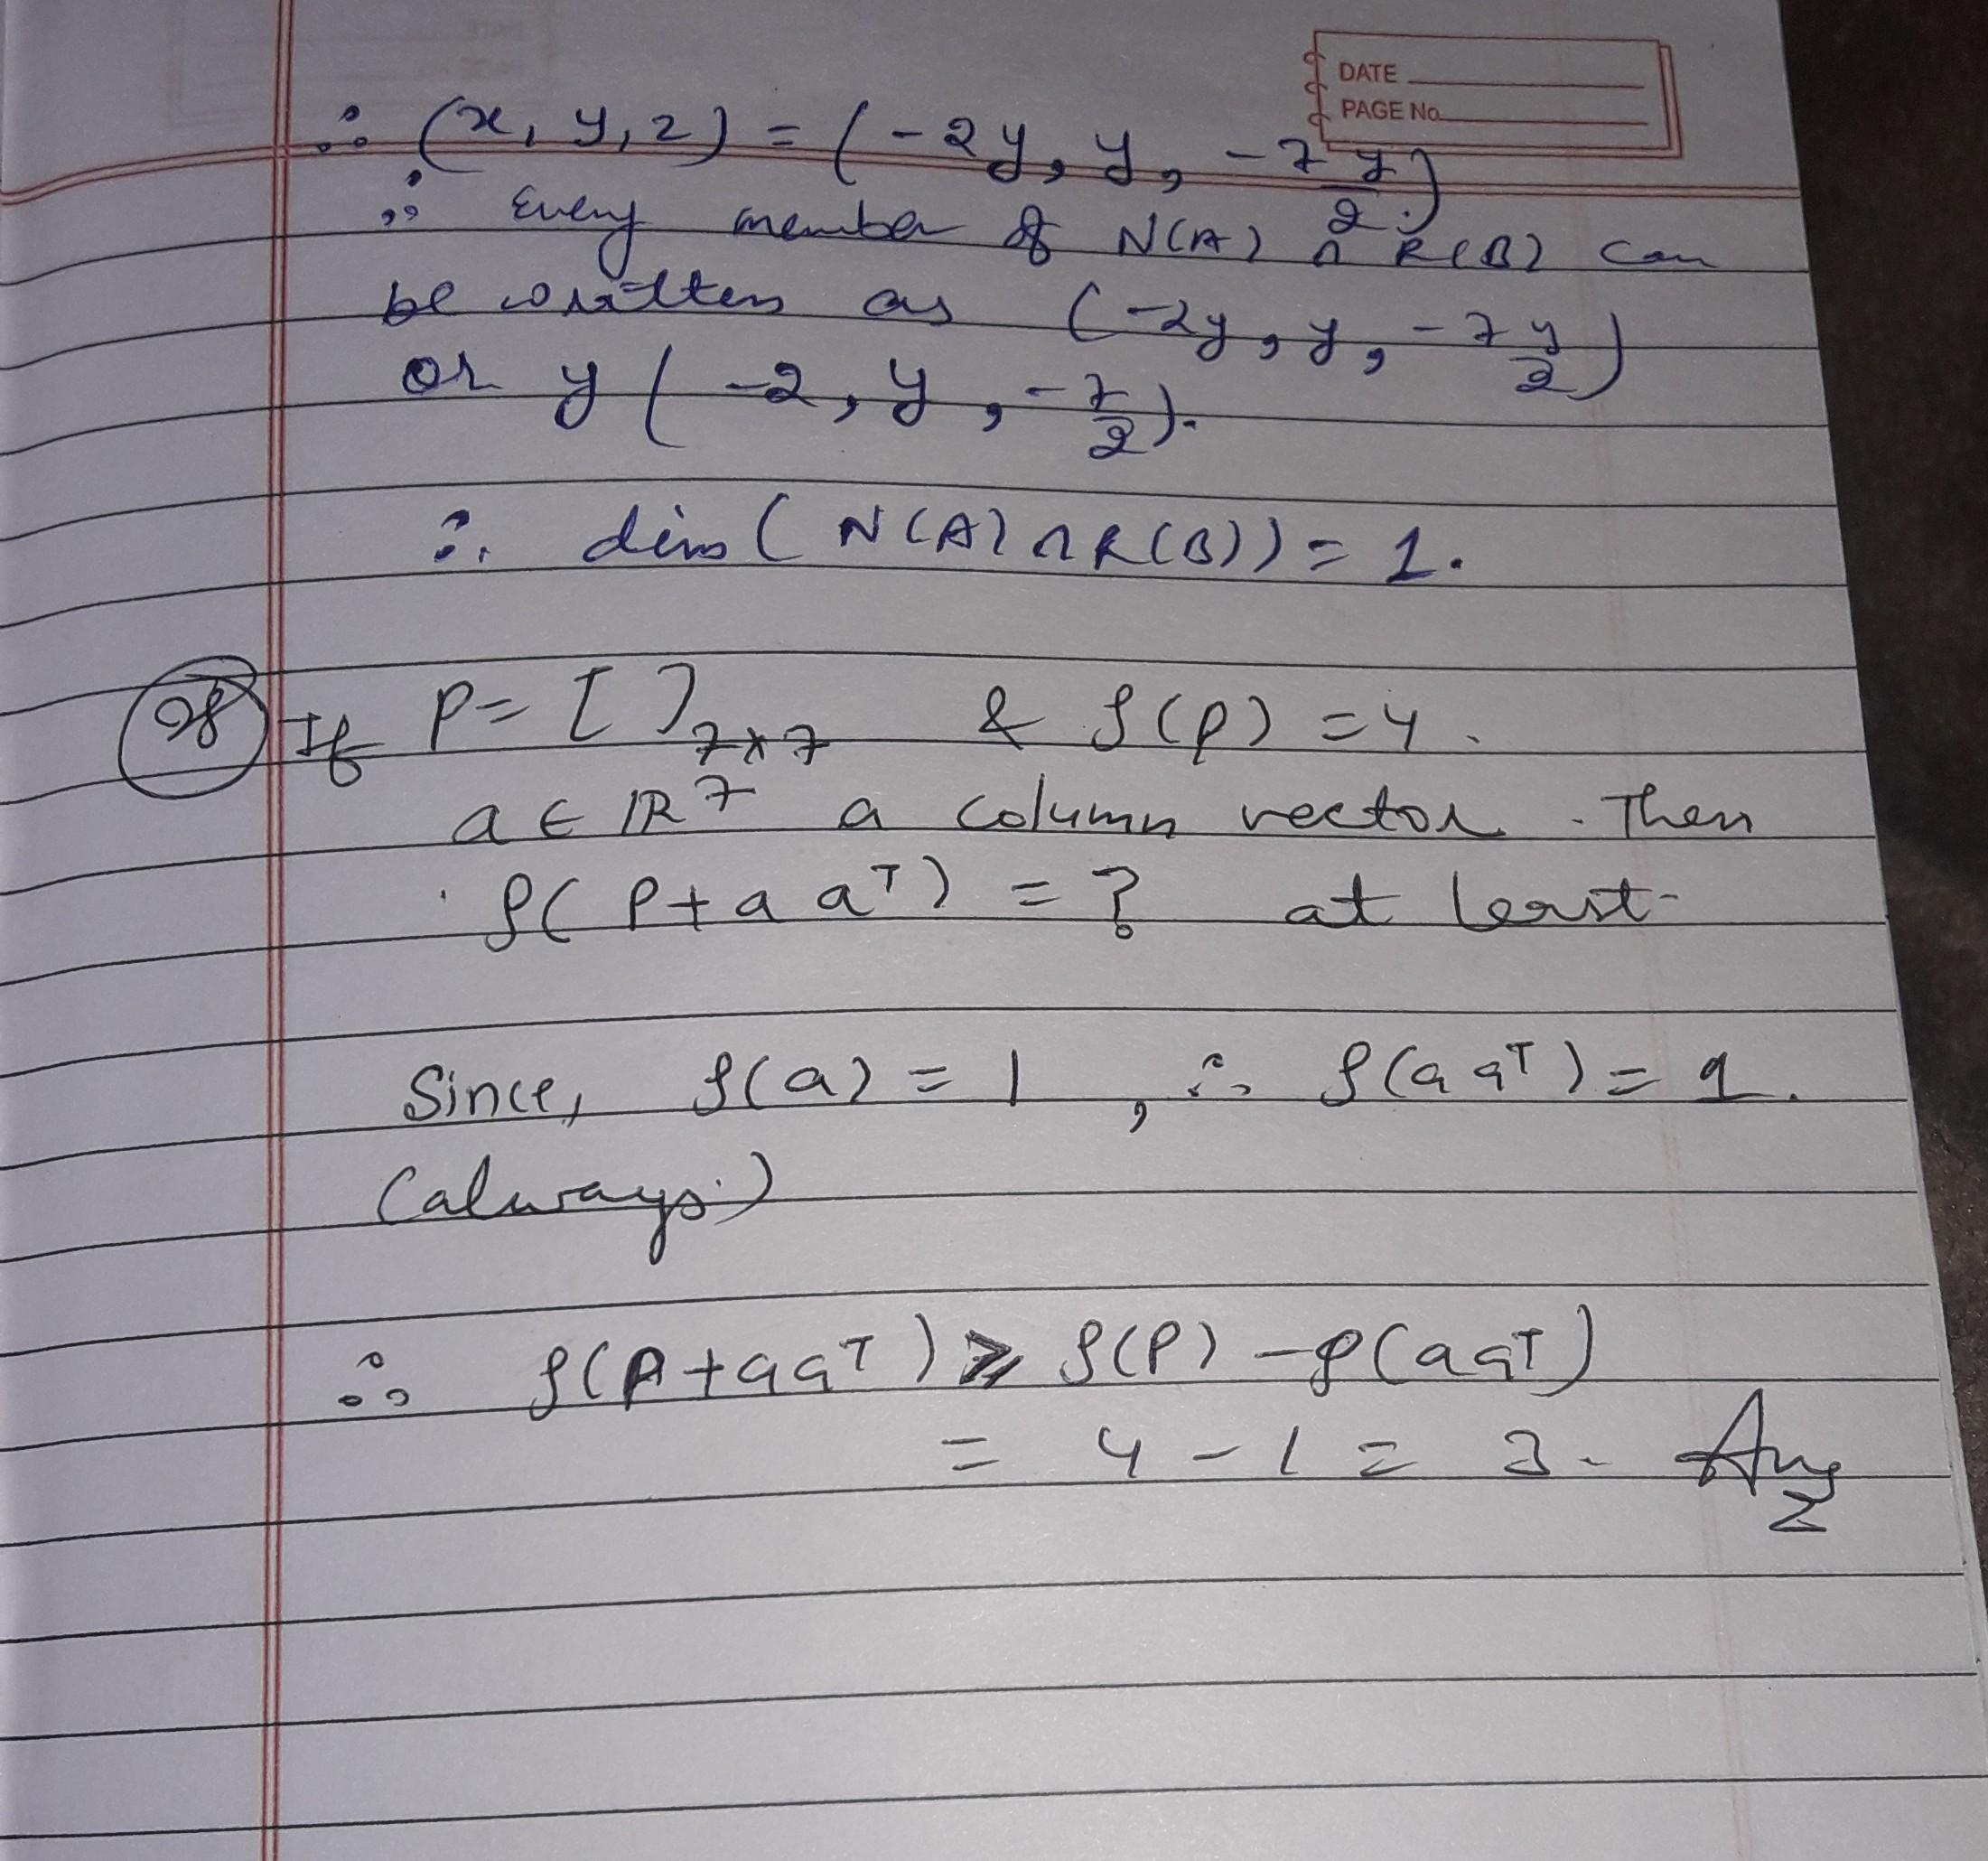 DATE
PAGE No.
∴ (x, y, z) = (-2y, y, -7y/2)
∴ Every member of N(A) ∩ R(B) can
be written as (-2y, y, -7y/2)
or y(-2, y, -7/2).
∴ dim(N(A) ∩ R(B)) = 1.
If P = [ ]7×7 & ρ(P) = 4.
a ∈ ℝ^7 a column vector. Then
ρ(P + a a^T) = ? at least
Since, ρ(a) = 1, ∴ ρ(a a^T) = 1.
(always)
∴ ρ(P + a a^T) ≥ ρ(P) - ρ(a a^T)
= 4 - 1 = 3. Ans